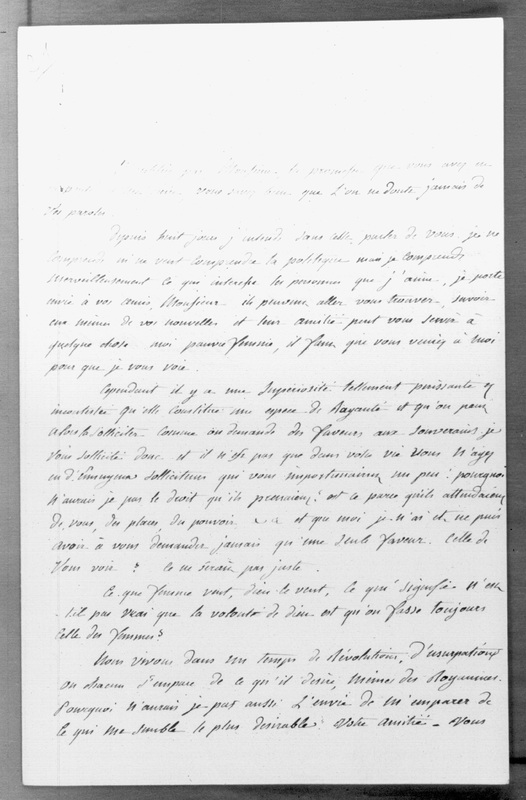 N'oubliez pas Monsieur la promesse que vous avez
vous savez bien que l'on ne doute jamais de
vos paroles.
Depuis huit jours j'entends sans cesse parler de vous. je ne
comprends ni ne veut comprendre la politique mais je comprends
merveilleusement ce que interesse les personnes que j'aime, je porte
envie à vos amis, Monsieur ils peuvent aller vous trouver, savoir
eux mêmes de vos nouvelles et leur amitié peut vous servir à
quelque chose. moi pauvre femme, il faut que vous veniez à moi
pour que je vous voie.
Cependant il y a une supériorité tellement puissante et
incontestée qu'elle constitue une espece de Royauté et qu'on peut
alors la solliciter comme on demande des faveurs aux souverains je
vous sollicite donc et il n'est pas que dans votre vie vous n'ayez
eu d'ennuyeux solliciteurs qui vous importunaient un peu : pourquoi
n'aurais je pas le droit qu'ils prenaient ? est ce parce qu'ils attendaient
de vous, des places, du pouvoir et que moi je n'ai et ne puis
avoir à vous demander jamais qu'une seule faveur. Celle de
vous voir ? Ce ne serait pas juste.
Ce que femme veut, dieu le veut, ce qui signifie n'est
-il pas vrai que la volonté de dieu est qu'on fasse toujours
celle des femmes ?
Nous vivons dans un temps de Révolutions, d'usurpations
ou chacun s'empare de ce qu'il desire, même des Royaumes.
Pourquoi n'aurais je pas aussi l'envie de m'emparer de
ce qui me semble le plus desirable. Votre amitié - Vous